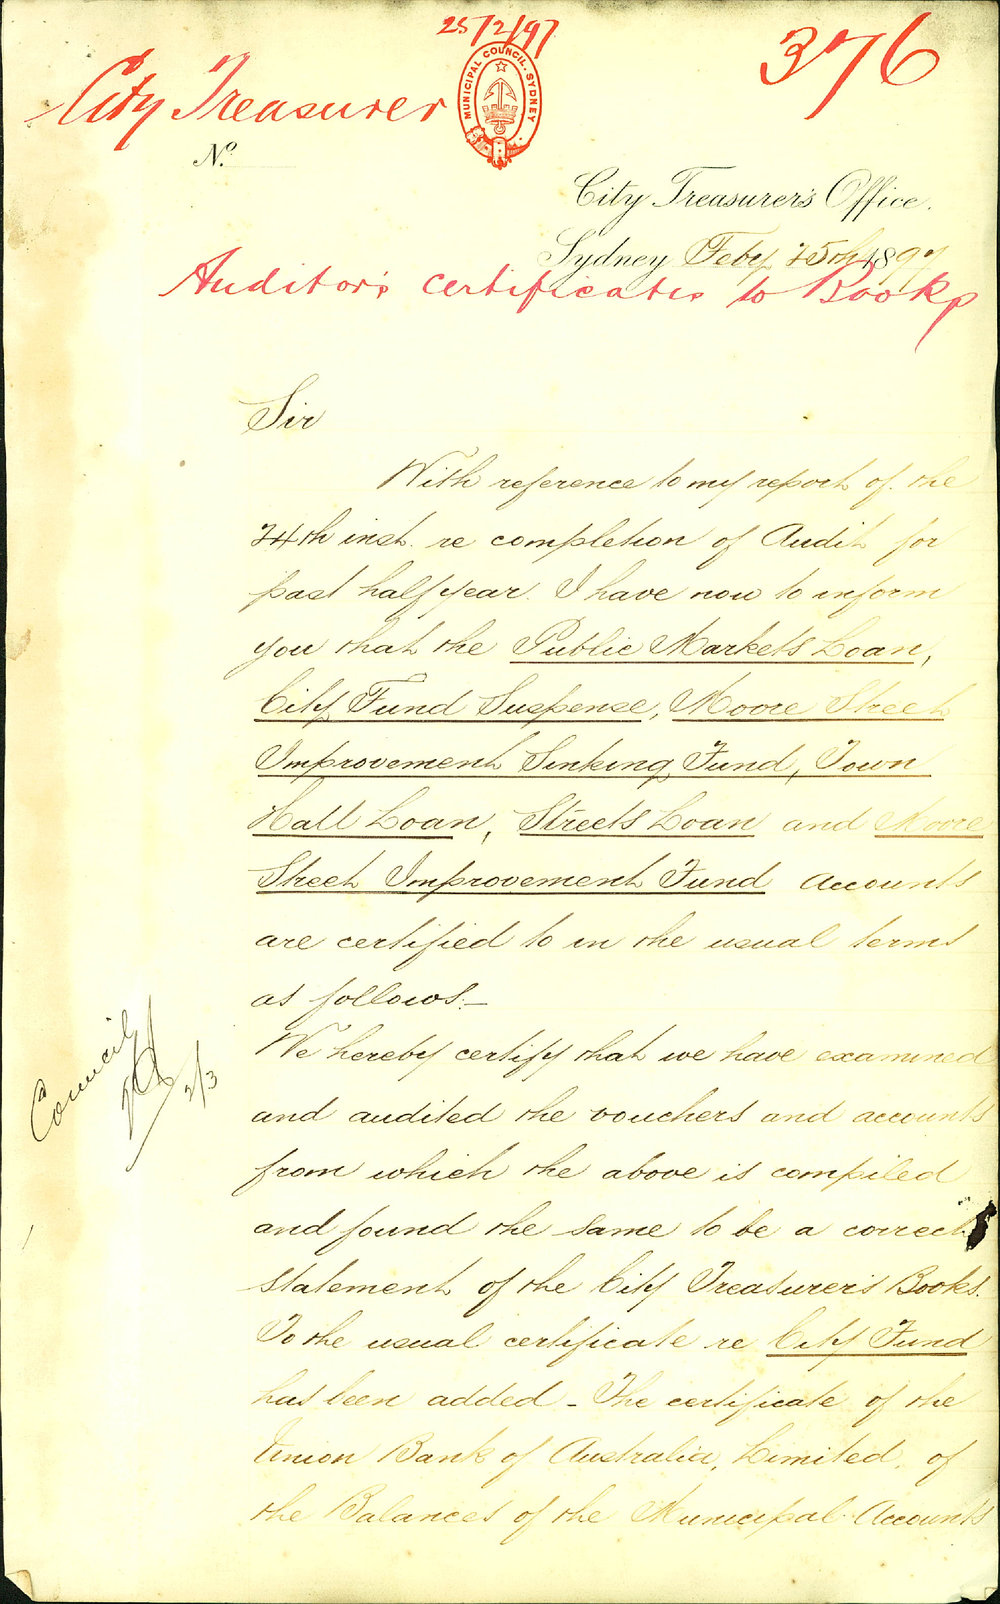 25/2/97
376
City Treasurer
MUNICIPAL COUNCIL. SYDNEY
No.
City Treasurer's Office.
Sydney Feby 25th 1897
Auditor's certificates to Books
Sir
With reference to my report of the
24th inst. re completion of Audit for
past half year. I have now to inform
you that the Public Markets Loan,
City Fund Suspense, Moore Street
Improvement Sinking Fund, Town
Hall Loan, Streets Loan and Moore
Street Improvement Fund accounts
are certified to in the usual terms
as follows:—
We hereby certify that we have examined
and audited the vouchers and accounts
from which the above is compiled
and found the same to be a correct
statement of the City Treasurer's Books.
To the usual certificate re City Fund
has been added - The certificate of the
Union Bank of Australia, Limited, of
the Balances of the Municipal Accounts
Council
2/3